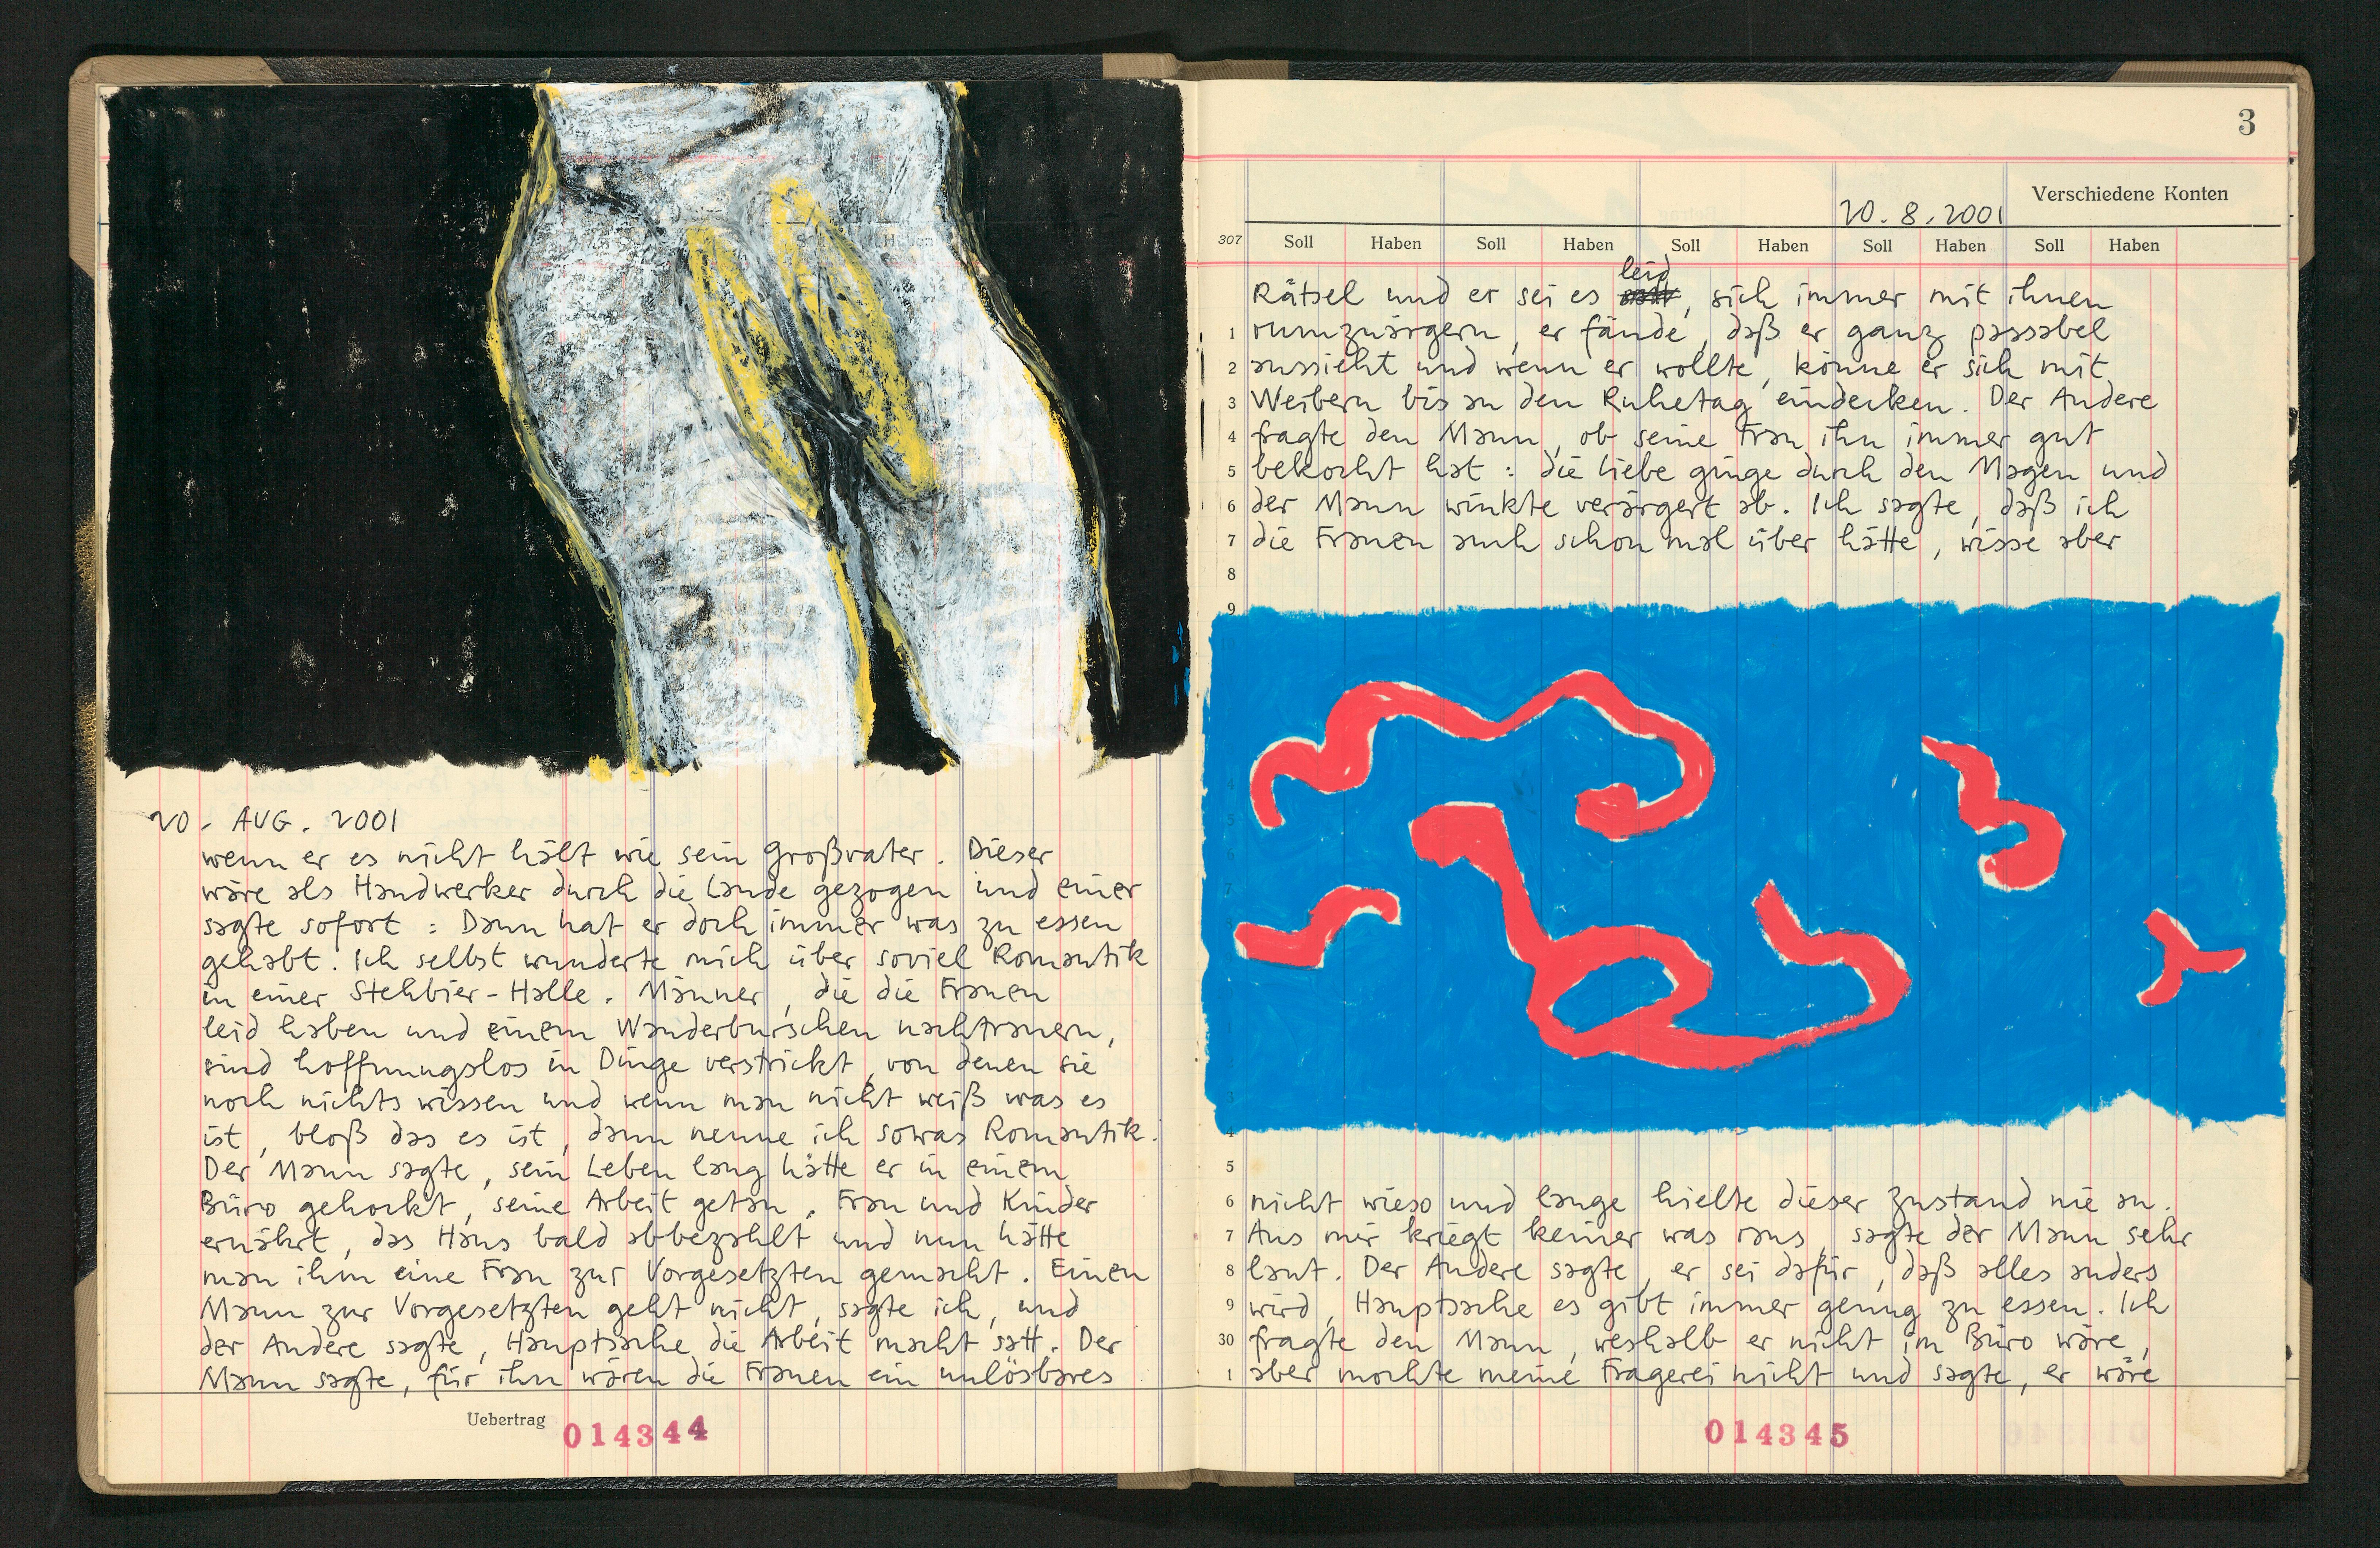 20. AUG. 2001
wenn er es nicht hält wie sein Großvater. Dieser
wäre als Handwerker durch die Lande gezogen und einer
sagte sofort: Dann hat er doch immer was zu essen
gehabt. Ich selbst wunderte mich über soviel Romantik
in einer Stehbier-Halle. Männer, die die Frauen
leid haben und einem Wanderburschen nachtrauern,
sind hoffnungslos in Dinge verstrickt, von denen sie
noch nichts wissen und wenn man nicht weiß was es
ist, bloß das es ist, dann nenne ich sowas Romantik.
Der Mann sagte, sein Leben lang hätte er in einem
Büro gehockt, seine Arbeit getan, Frau und Kinder
ernährt, das Haus bald abbezahlt und nun hätte
man ihm eine Frau zur Vorgesetzten gemacht. Einen
Mann zur Vorgesetzten geht nicht, sagte ich, und
der Andere sagte, Hauptsache die Arbeit macht satt. Der
Mann sagte, für ihn wären die Frauen ein unlösbares
Uebertrag 014344
3
Verschiedene Konten
20.8.2001
307 Soll Haben Soll Haben Soll Haben Soll Haben Soll Haben
leid
Rätsel und er sei es, sich immer mit ihnen
1 rumzuärgern, er fände, daß er ganz passabel
2 aussieht und wenn er wollte, könne er sich mit
3 Weibern bis an den Ruhetag eindecken. Der Andere
4 fragte den Mann, ob seine Frau ihn immer gut
5 bekocht hat: die Liebe ginge durch den Magen und
6 der Mann winkte verärgert ab. Ich sagte, daß ich
7 die Frauen auch schon mal über hätte, wisse aber
8
9
5
6 nicht wieso und lange hielte dieser Zustand nie an.
7 Aus mir kriegt keiner was raus, sagte der Mann sehr
8 laut. Der Andere sagte, er sei dafür, daß alles anders
9 wird, Hauptsache es gibt immer genug zu essen. Ich
30 fragte den Mann, weshalb er nicht im Büro wäre,
1 aber mochte meine Fragerei nicht und sagte, er wäre
014345